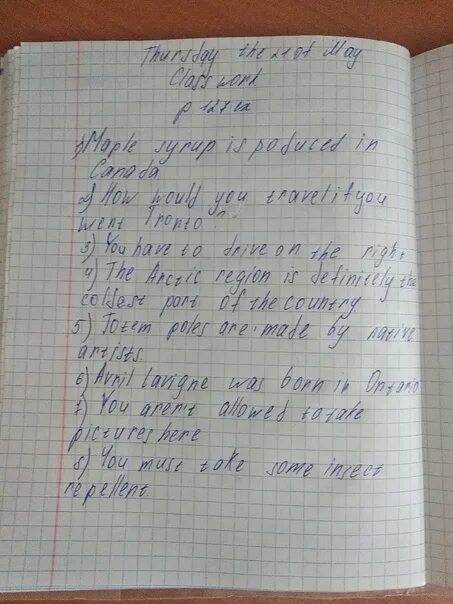 Thursday the 21 of May
Class work
p 127 ex
1) Maple syrup is poduced in
Canada
2) How would you travel if you
went Tronto ?
3) You have to drive on the right
4) The Arctic region is definitely the
coldest part of the country.
5) Totem poles are made by native
artists.
6) Avril Lavigne was born in Ontario
7) You aren't allowed to take
pictures here
8) You must take some insect
repellent.